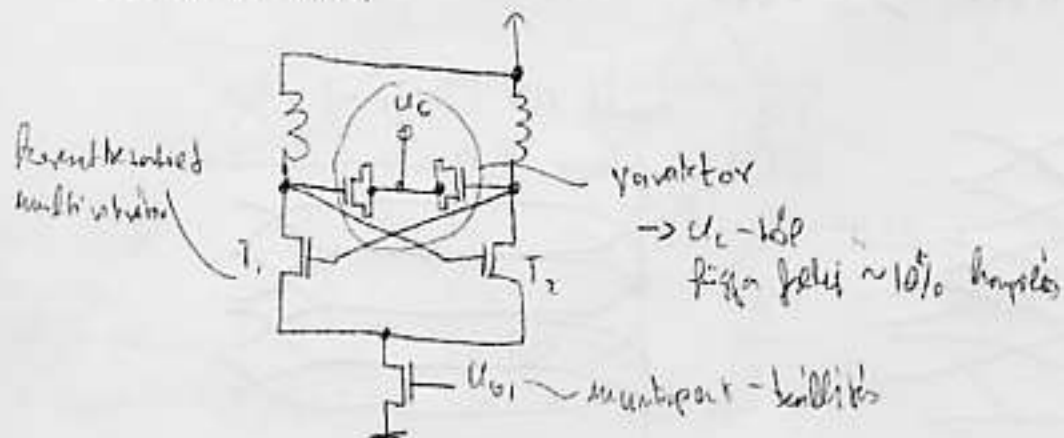 U_C
keresztbecsatolt
multivibrátor
varaktor
→ U_C-től
függ a
~10%
T_1
T_2
U_G1
munkapont-beállítás